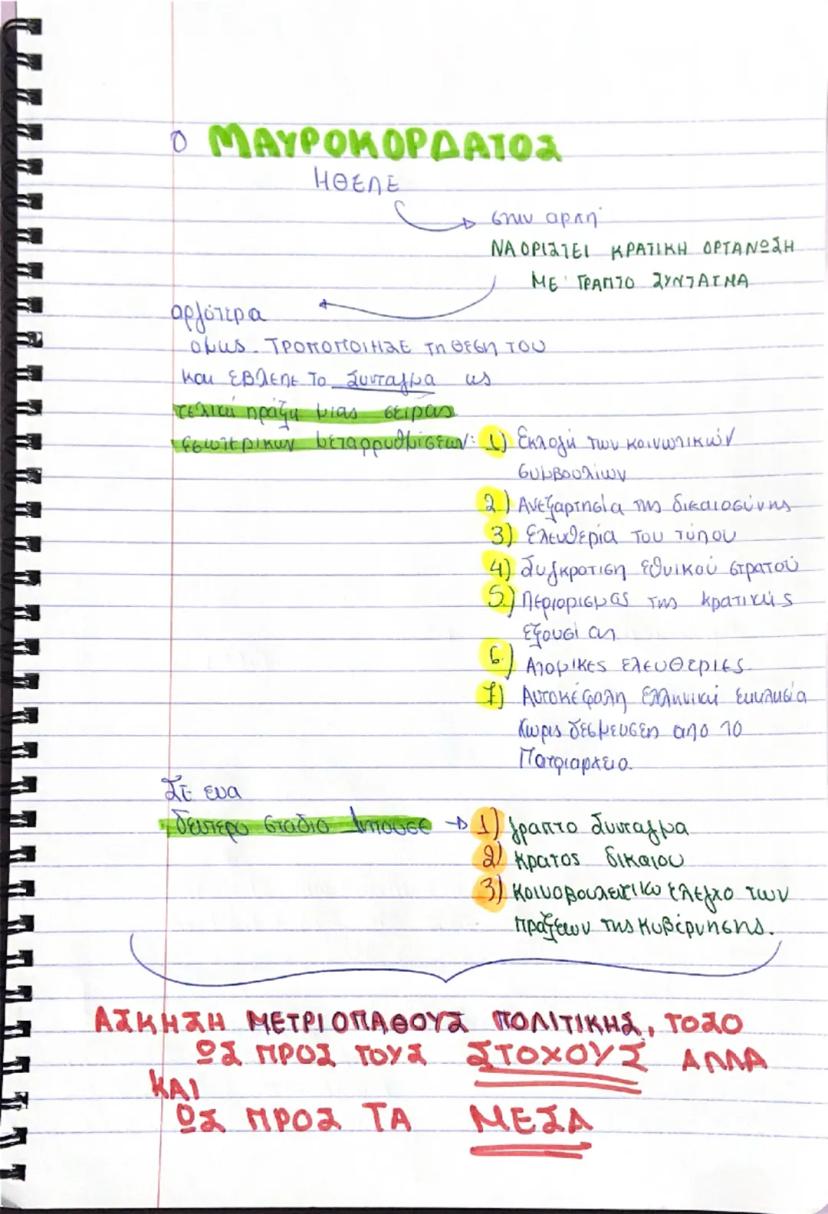 Ο ΜΑΥΡΟΚΟΡΔΑΤΟΣ
ΗΘΕΛΕ
στην αρχή
ΝΑ ΟΡΙΣΤΕΙ ΚΡΑΤΙΚΗ ΟΡΓΑΝΩΣΗ
ΜΕ ΓΡΑΠΤΟ ΣΥΝΤΑΓΜΑ
αργότερα
ομως ΤΡΟΠΟΠΟΙΗΣΕ τη θεση του
και έβλεπε το Συνταγμα ως
τελική πράξη μιας σειράς
εσωτερικων μεταρρυθμίσεων: 1) Εκλογή των κοινωτικών
συμβουλίων
2) Ανεξαρτησία της δικαιοσύνης
3) Ελευθερία του τύπου
4) Συγκρότιση εθνικού στρατού
5) Περιορισμός της κρατικής
εξουσίας
6) Ατομικες ελευθεριες
7) Αυτοκέφαλη ελληνική εκκλησία
χωρις δεσμευσεις απο το
Πατριαρχειο.
Σε ενα
δευτερο σταδιο → 1) γραπτο Συνταγμα
2) κρατος δικαιου
3) κοινοβουλευτικο έλεγχο των
πράξεων της κυβέρνησης.
ΑΣΚΗΣΗ ΜΕΤΡΙΟΠΑΘΟΥΣ ΠΟΛΙΤΙΚΗΣ, ΤΟΣΟ
ΩΣ ΠΡΟΣ ΤΟΥΣ ΣΤΟΧΟΥΣ ΑΛΛΑ
ΚΑΙ
ΩΣ ΠΡΟΣ ΤΑ ΜΕΣΑ